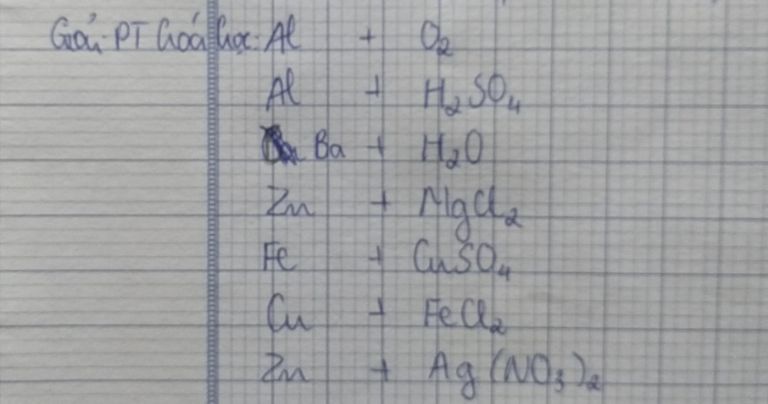 Giải PT hoá học: Al + O₂
Al + H₂SO₄
Ba + H₂O
Zn + MgCl₂
Fe + CuSO₄
Cu + FeCl₂
Zn + Ag(NO₃)₂